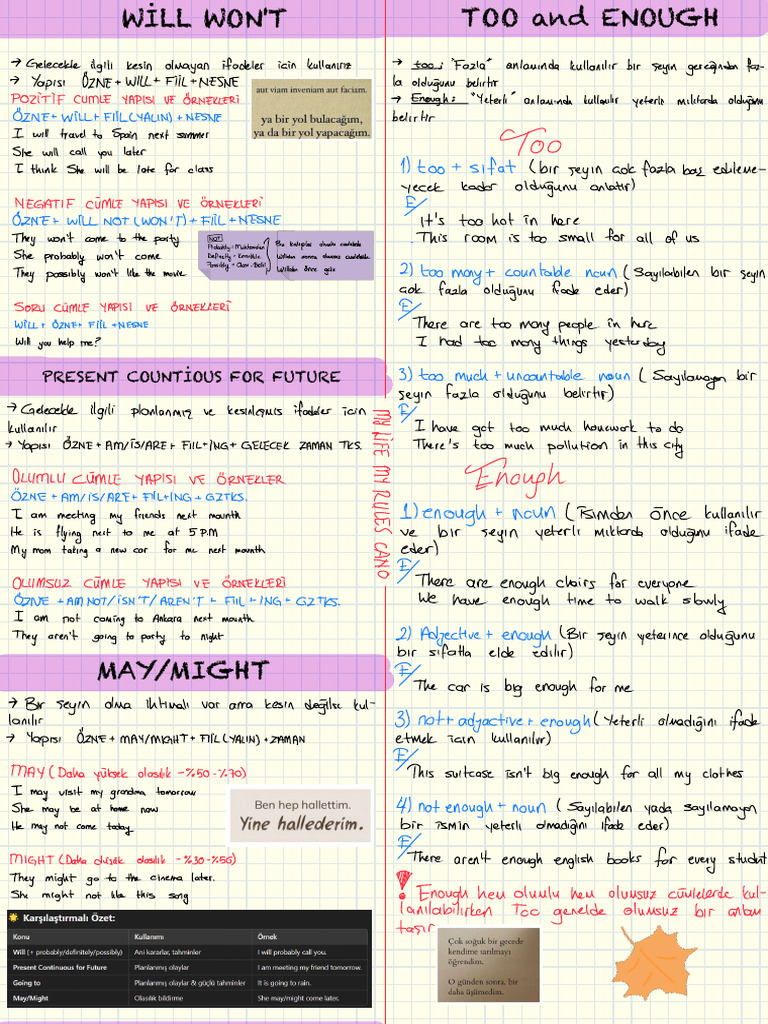 WİLL WON'T
→ Gelecekle ilgili kesin olmayan ifadeler icin kullanırız
→ Yapısı ÖZNE + WILL + FİİL + NESNE
POZİTİF CUMLE YAPISI VE ÖRNEKLERİ
ÖZNE + WILL + FİİL (YALIN) + NESNE
I will travel to Spain next summer
She will call you later
I think She will be late for class
aut viam inveniam aut faciam.
ya bir yol bulacağım,
ya da bir yol yapacağım.
NEGATİF CÜMLE YAPISI VE ÖRNEKLERİ
ÖZNE + WILL NOT (WON'T) + FİİL + NESNE
They won't come to the party
She probably won't come
They possibly won't like the movie
NOT
Probably: Muhtemelen
Definetly = Kesinlikle
Possibly = Olası - Belki
Bu kalıplar olumlu cümlelerde
Willden sonra olumsuz cümlelerde
Willden önce gelir
SORU CÜMLE YAPISI VE ÖRNEKLERİ
WILL + ÖZNE + FİİL + NESNE
Will you help me?
PRESENT COUNTİOUS FOR FUTURE
→ Gelecekle ilgili planlanmış ve kesinleşmiş ifadeler icin
kullanılır
→ Yapısı ÖZNE + AM/İS/ARE + FİİL + ING + GELECEK ZAMAN TKS.
OLUMLU CÜMLE YAPISI VE ÖRNEKLER
ÖZNE + AM/İS/ARE + FİİL + ING + GZTKS.
I am meeting my friends next mounth
He is flying next to me at 5 P.M
My mom taking a new car for me next mounth
OLUMSUZ CÜMLE YAPISI VE ÖRNEKLERİ
ÖZNE + AM NOT / İSN'T / AREN'T + FİİL + ING + GZTKS.
I am not coming to Ankara next mounth
They aren't going to party to night
MAY/MIGHT
→ Bir şeyin olma ihtimali var ama kesin değilse kul-
lanılır
→ Yapısı ÖZNE + MAY/MIGHT + FİİL (YALIN) + ZAMAN
MAY (Daha yüksek olasılık -%50-%70)
I may visit my grandma tomorrow
She may be at home now
He may not come today
Ben hep hallettim.
Yine hallederim.
MIGHT (Daha düşük olasılık -%30-%50)
They might go to the cinema later.
She might not like this song
Karşılaştırmalı Özet:
Konu Kullanımı Örnek
Will (+ probably/definitely/possibly) Ani kararlar, tahminler I will probably call you.
Present Continuous for Future Planlanmış olaylar I am meeting my friend tomorrow.
Going to Planlanmış olaylar & güçlü tahminler It is going to rain.
May/Might Olasılık bildirme She may/might come later.
MY LIFE MY RULES CANO
TOO and ENOUGH
→ too: "Fazla" anlamında kullanılır bir şeyin gereğinden faz-
la olduğunu belirtir
→ Enough: "Yeterli" anlamında kullanılır yeterli miktarda olduğunu
belirtir
Too
1) too + sıfat (bir şeyin cok fazla baş edileme-
yecek kadar olduğunu anlatır)
E/
It's too hot in here
This room is too small for all of us
2) too many + countable noun (Sayılabilen bir şeyin
cok fazla olduğunu ifade eder)
E/
There are too many people in here
I had too many things yesterday
3) too much + uncountable noun (Sayılamayan bir
şeyin fazla olduğunu belirtir)
E/
I have got too much homework to do
There's too much pollution in this city
Enough
1) enough + noun (isimden önce kullanılır
ve bir şeyin yeterli miktarda olduğunu ifade
eder)
E/
There are enough chairs for everyone
We have enough time to walk slowly
2) Adjective + enough (Bir şeyin yeterince olduğunu
bir sıfatla elde edilir)
E/
The car is big enough for me
3) not + adjactive + enough (Yeterli olmadığını ifade
etmek icin kullanılır)
E/
This suitcase isn't big enough for all my clothes
4) not enough + noun (Sayılabilen yada sayılamayan
bir ismin yeterli olmadığını ifade eder)
E/
There aren't enough english books for every student
! Enough hem olumlu hem olumsuz cümlelerde kul-
lanılabilirken Too genelde olumsuz bir anlam
taşır
Çok soğuk bir gecede
kendime sarılmayı
öğrendim.
O günden sonra, bir
daha üşümedim.